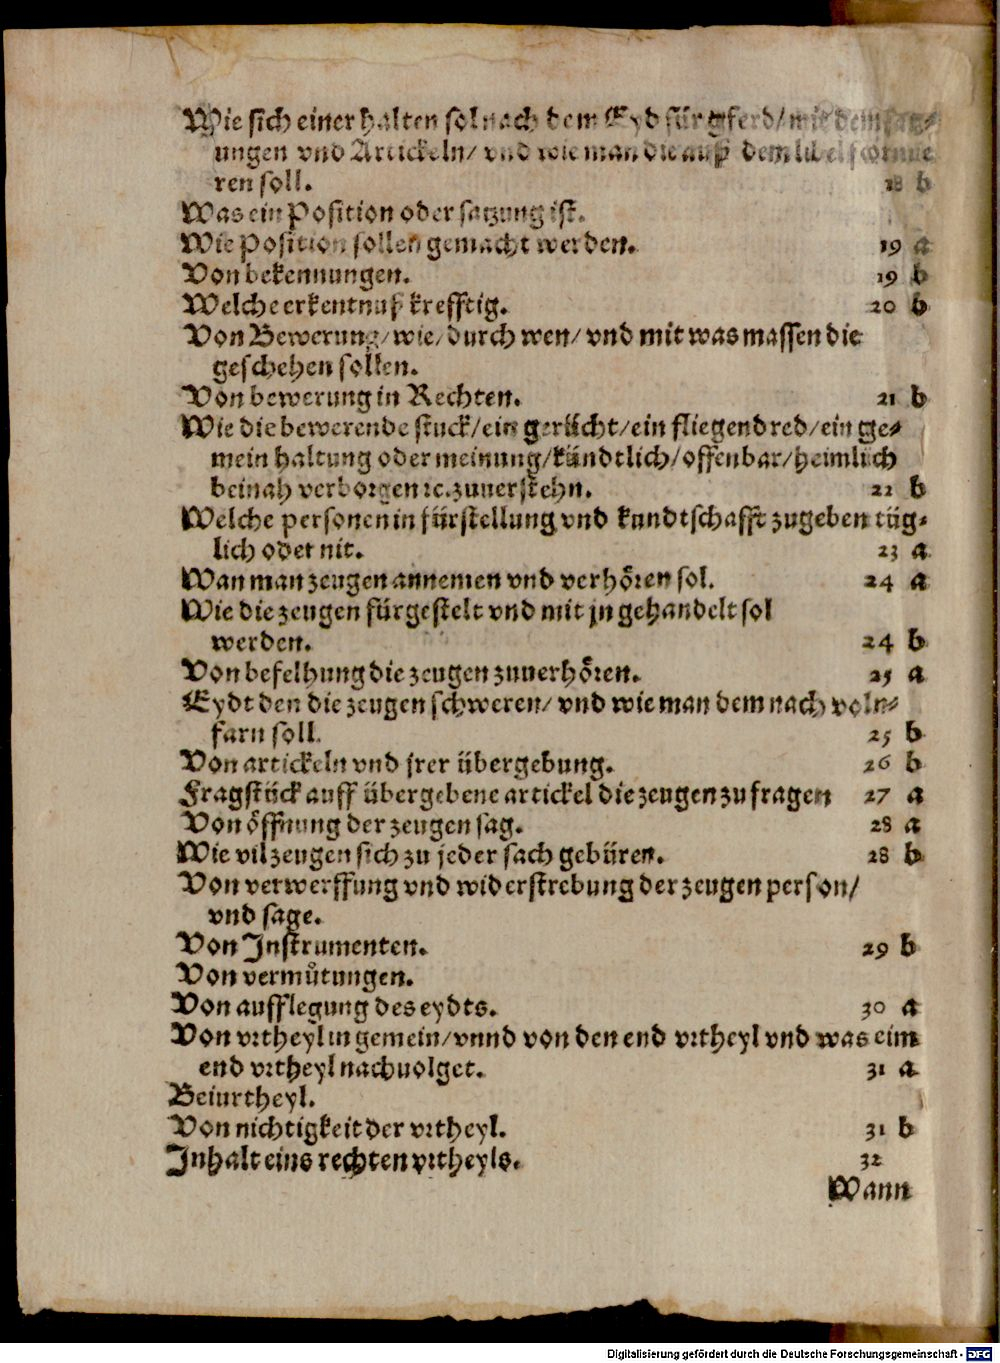 Wie sich einer halten sol nach dem Eyd für gferd/ mit
ungen vnd Artickeln/ vnd wie man die auß dem libel
ren soll. 18 b
Was ein Position oder satzung ist.
Wie Position sollen gemacht werden. 19 a
Von bekennungen. 19 b
Welche erkentnuß krefftig. 20 b
Von Bewerung/ wie/ durch wen/ vnd mit was massen die
geschehen sollen.
Von bewerung in Rechten. 21 b
Wie die bewerende stuck/ ein gerücht/ ein fliegend red/ ein ge⸗
mein haltung oder meinung/ kündtlich/ offenbar/ heimlich
beinah verborgen ꝛc. zuuerstehn. 22 b
Welche personen in fürstellung vnd kundtschafft zugeben tüg⸗
lich odet nit. 23 a
Wan man zeugen annemen vnd verhoͤren sol. 24 a
Wie die zeugen fürgestelt vnd mit jn gehandelt sol
werden. 24 b
Von befelhung die zeugen zuuerhoͤren. 25 a
Eydt den die zeugen schweren/ vnd wie man dem nach voln⸗
farn soll. 25 b
Von artickeln vnd jrer übergebung. 26 b
Fragstück auff übergebene artickel die zeugen zu fragen 27 a
Von oͤffnung der zeugen sag. 28 a
Wie vil zeugen sich zu jeder sach gebüren. 28 b
Von verwerffung vnd widerstrebung der zeugen person/
vnd sage.
Von Instrumenten. 29 b
Von vermuͦtungen.
Von aufflegung des eydts. 30 a
Von vꝛtheyl in gemein/ vnnd von den end vꝛtheyl vnd was eim
end vꝛtheyl nachuolget. 31 a
Beiurtheyl.
Von nichtigkeit der vꝛtheyl. 31 b
Inhalt eins rechten vꝛtheyls. 32
Wann
Digitalisierung gefördert durch die Deutsche Forschungsgemeinschaft - DFG